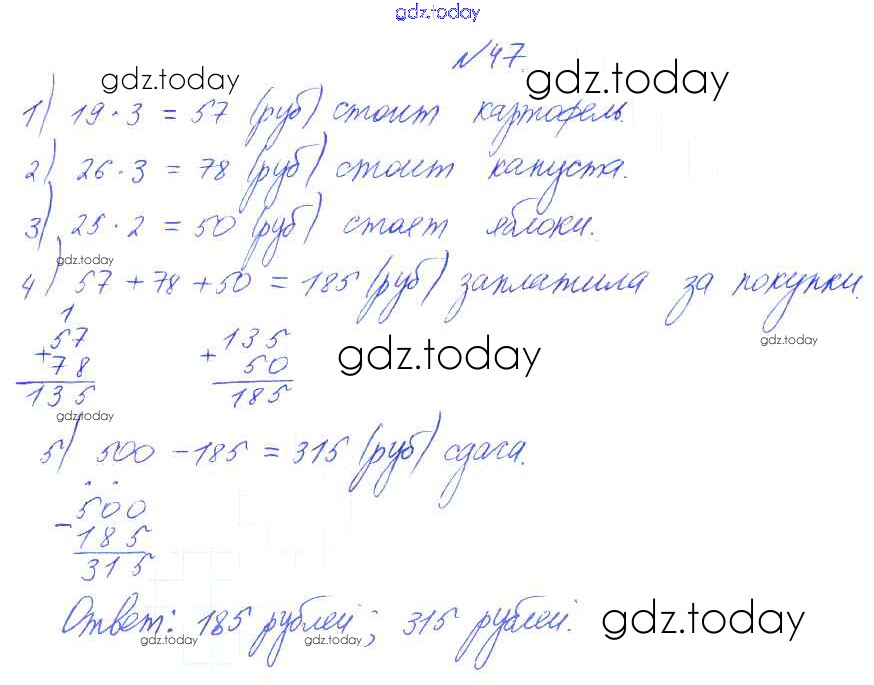 gdz.today
№47
gdz.today gdz.today
1) 19·3 = 57 (руб) стоит картофель.
2) 26·3 = 78 (руб) стоит капуста.
3) 25·2 = 50 (руб) стоят яблоки.
gdz.today
4) 57 + 78 + 50 = 185 (руб) заплатила за покупки.
1
+57 +135
78 50
135 185
gdz.today gdz.today
gdz.today
5) 500 - 185 = 315 (руб) сдача.
. .
-500
185
315
Ответ: 185 рублей; 315 рублей.
gdz.today gdz.today gdz.today